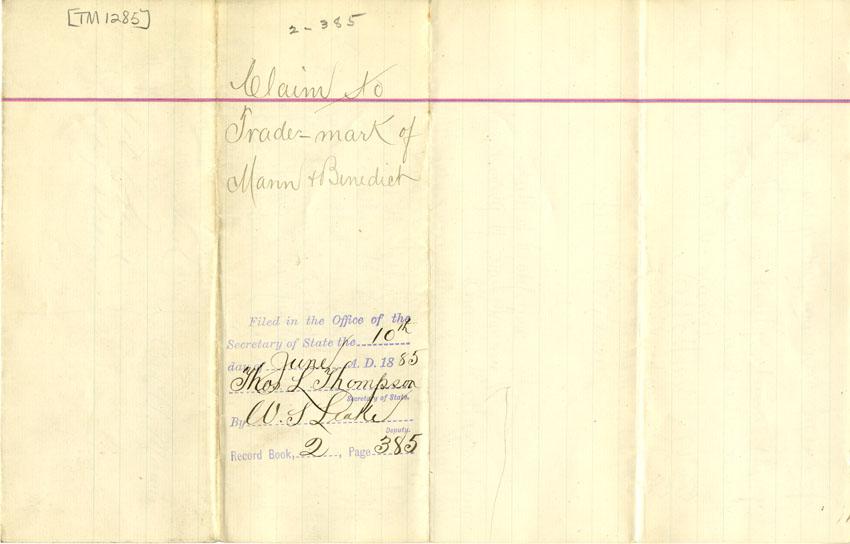 [TM 1285]
2-385
Claim to
Trade-mark of
Mann & Benedict
Filed in the Office of the
Secretary of State the 10th
day of June A. D. 1885
Thos L. Thompson
Secretary of State.
By W. S Leake
Deputy.
Record Book, 2, Page 385